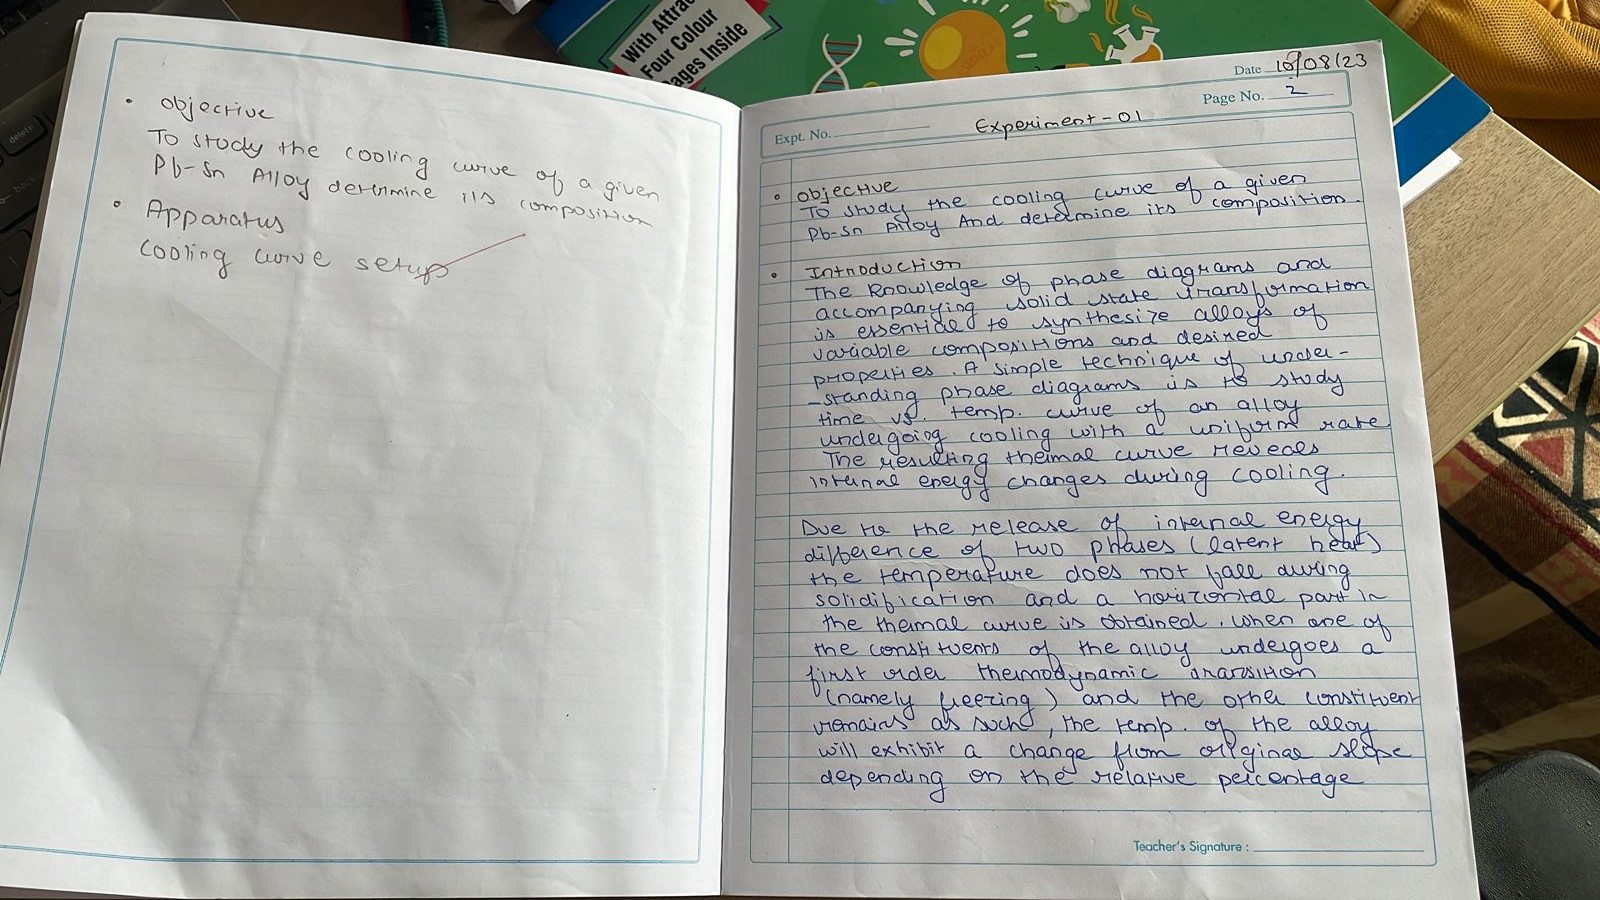 With Attrac
Four Colour
ages Inside
delete
• Objective
To study the cooling curve of a given
Pb-Sn Alloy determine its composition
• Apparatus
Cooling curve setup
Date 10/08/23
Page No. 2
Expt. No.
Experiment-01
• Objective
To study the cooling curve of a given
Pb-Sn Alloy And determine its composition.
• Introduction
The knowledge of phase diagrams and
accompanying solid state transformation
is essential to synthesize alloys of
variable compositions and desired
properties. A simple technique of under-
-standing phase diagrams is to study
time vs. temp. curve of an alloy
undergoing cooling with a uniform rate.
The resulting thermal curve reveals
internal energy changes during cooling.
Due to the release of internal energy
difference of two phases (latent heat)
the temperature does not fall during
solidification and a horizontal part in
the thermal curve is obtained. When one of
the constituents of the alloy undergoes a
first order thermodynamic transition
(namely freezing) and the other constituent
remains as such, the temp. of the alloy
will exhibit a change from original slope
depending on the relative percentage
Teacher's Signature :